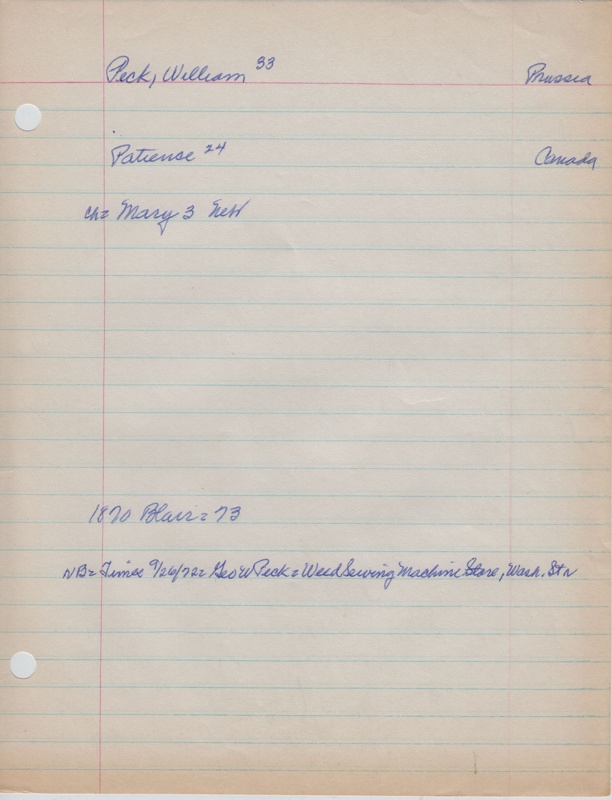 Peck, William 33 Prussia
Patiense 24 Canada
ch= Mary 3 Neb
1870 Blair = 73
NB= Times 9/26/72 = Geo W Peck = Weed Sewing Machine Store, Wash. St N